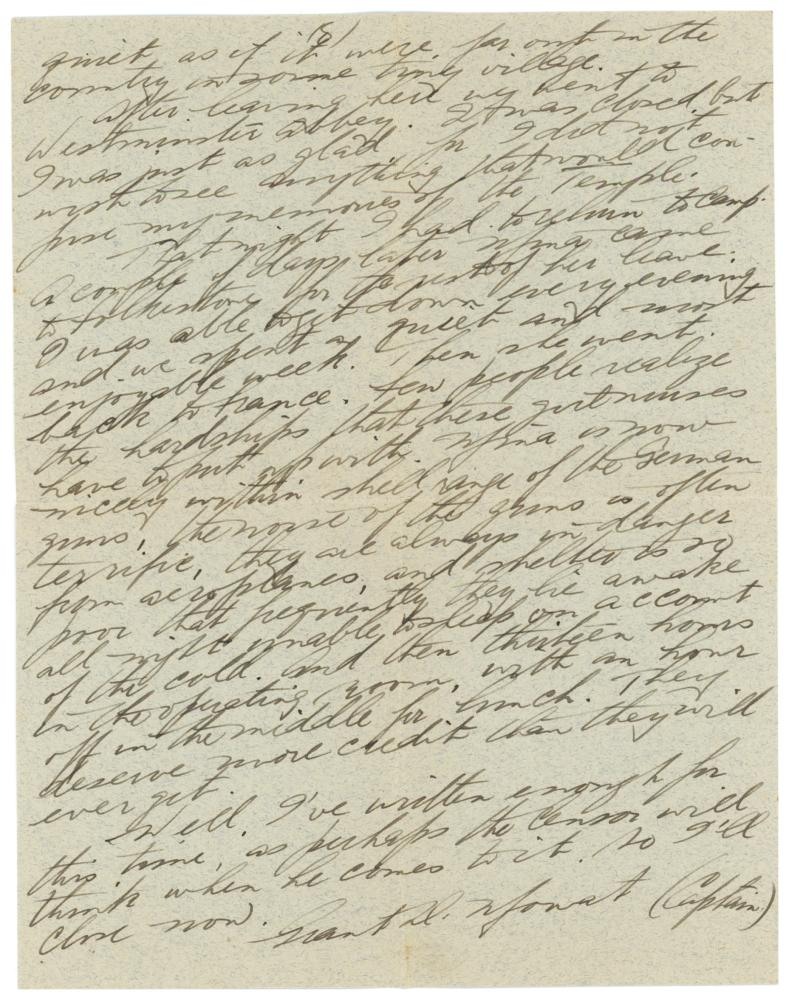 (8)
quiet as if it were far out in the
country in some tiny village.
After leaving here we went to
Westminster Abbey. It was closed, but
I was just as glad, for I did not
wish to see anything that would con-
fuse my memories of the Temple.
That night I had to return to camp.
A couple of days later came
to Folkestone for the rest of her leave.
I was able to get down every evening
and we spent a quiet and most
enjoyable week. Then she went
back to France. Few people realize
the hardships that these girl nurses
have to put up with. is now
nicely within shell range of the German
guns, the noise of the guns is often
terrific, they are always in danger
from aeroplanes, and shelter is so
poor that frequently they lie awake
all night unable to sleep on account
of the cold. And then thirteen hours
in the operating room, with an hour
off in the middle for lunch. They
deserve more credit than they will
ever get.
Well, I've written enough for
this time, as perhaps the censor will
think when he comes to it. So I'll
close now.
Grant D. Mowat (Captain)